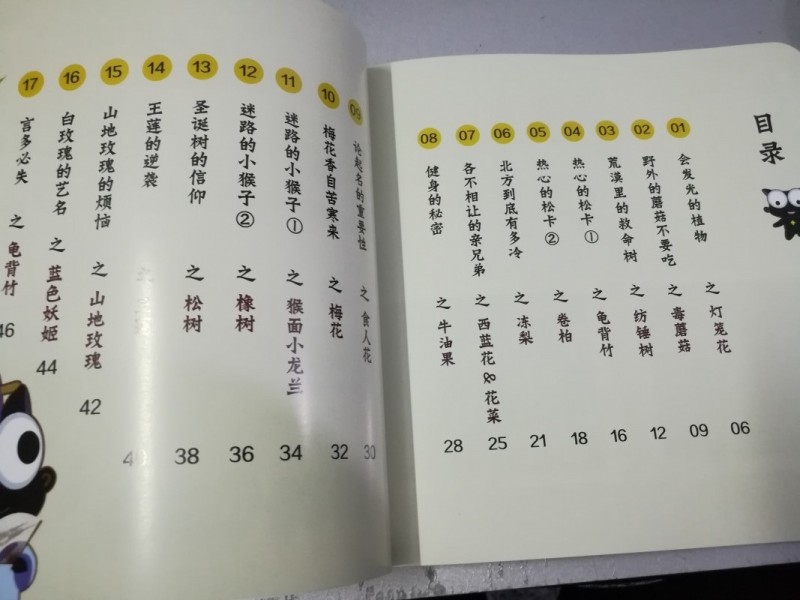 目录
01
会发光的植物
之 灯笼花
06
02
野外的蘑菇不要吃
之 毒蘑菇
09
03
荒漠里的救命树
之 纺锤树
12
04
热心的松卡①
之 龟背竹
16
05
热心的松卡②
之 卷柏
18
06
北方到底有多冷
之 冻梨
21
07
各不相让的亲兄弟
之 西蓝花&花菜
25
08
健身的秘密
之 牛油果
28
09
论起名的重要性
之 食人花
30
10
梅花香自苦寒来
之 梅花
32
11
迷路的小猴子①
之 猴面小龙兰
34
12
迷路的小猴子②
之 橡树
36
13
圣诞树的信仰
之 松树
38
14
王莲的逆袭
15
山地玫瑰的烦恼
之 山地玫瑰
42
16
白玫瑰的艺名
之 蓝色妖姬
44
17
言多必失
之 龟背竹
46